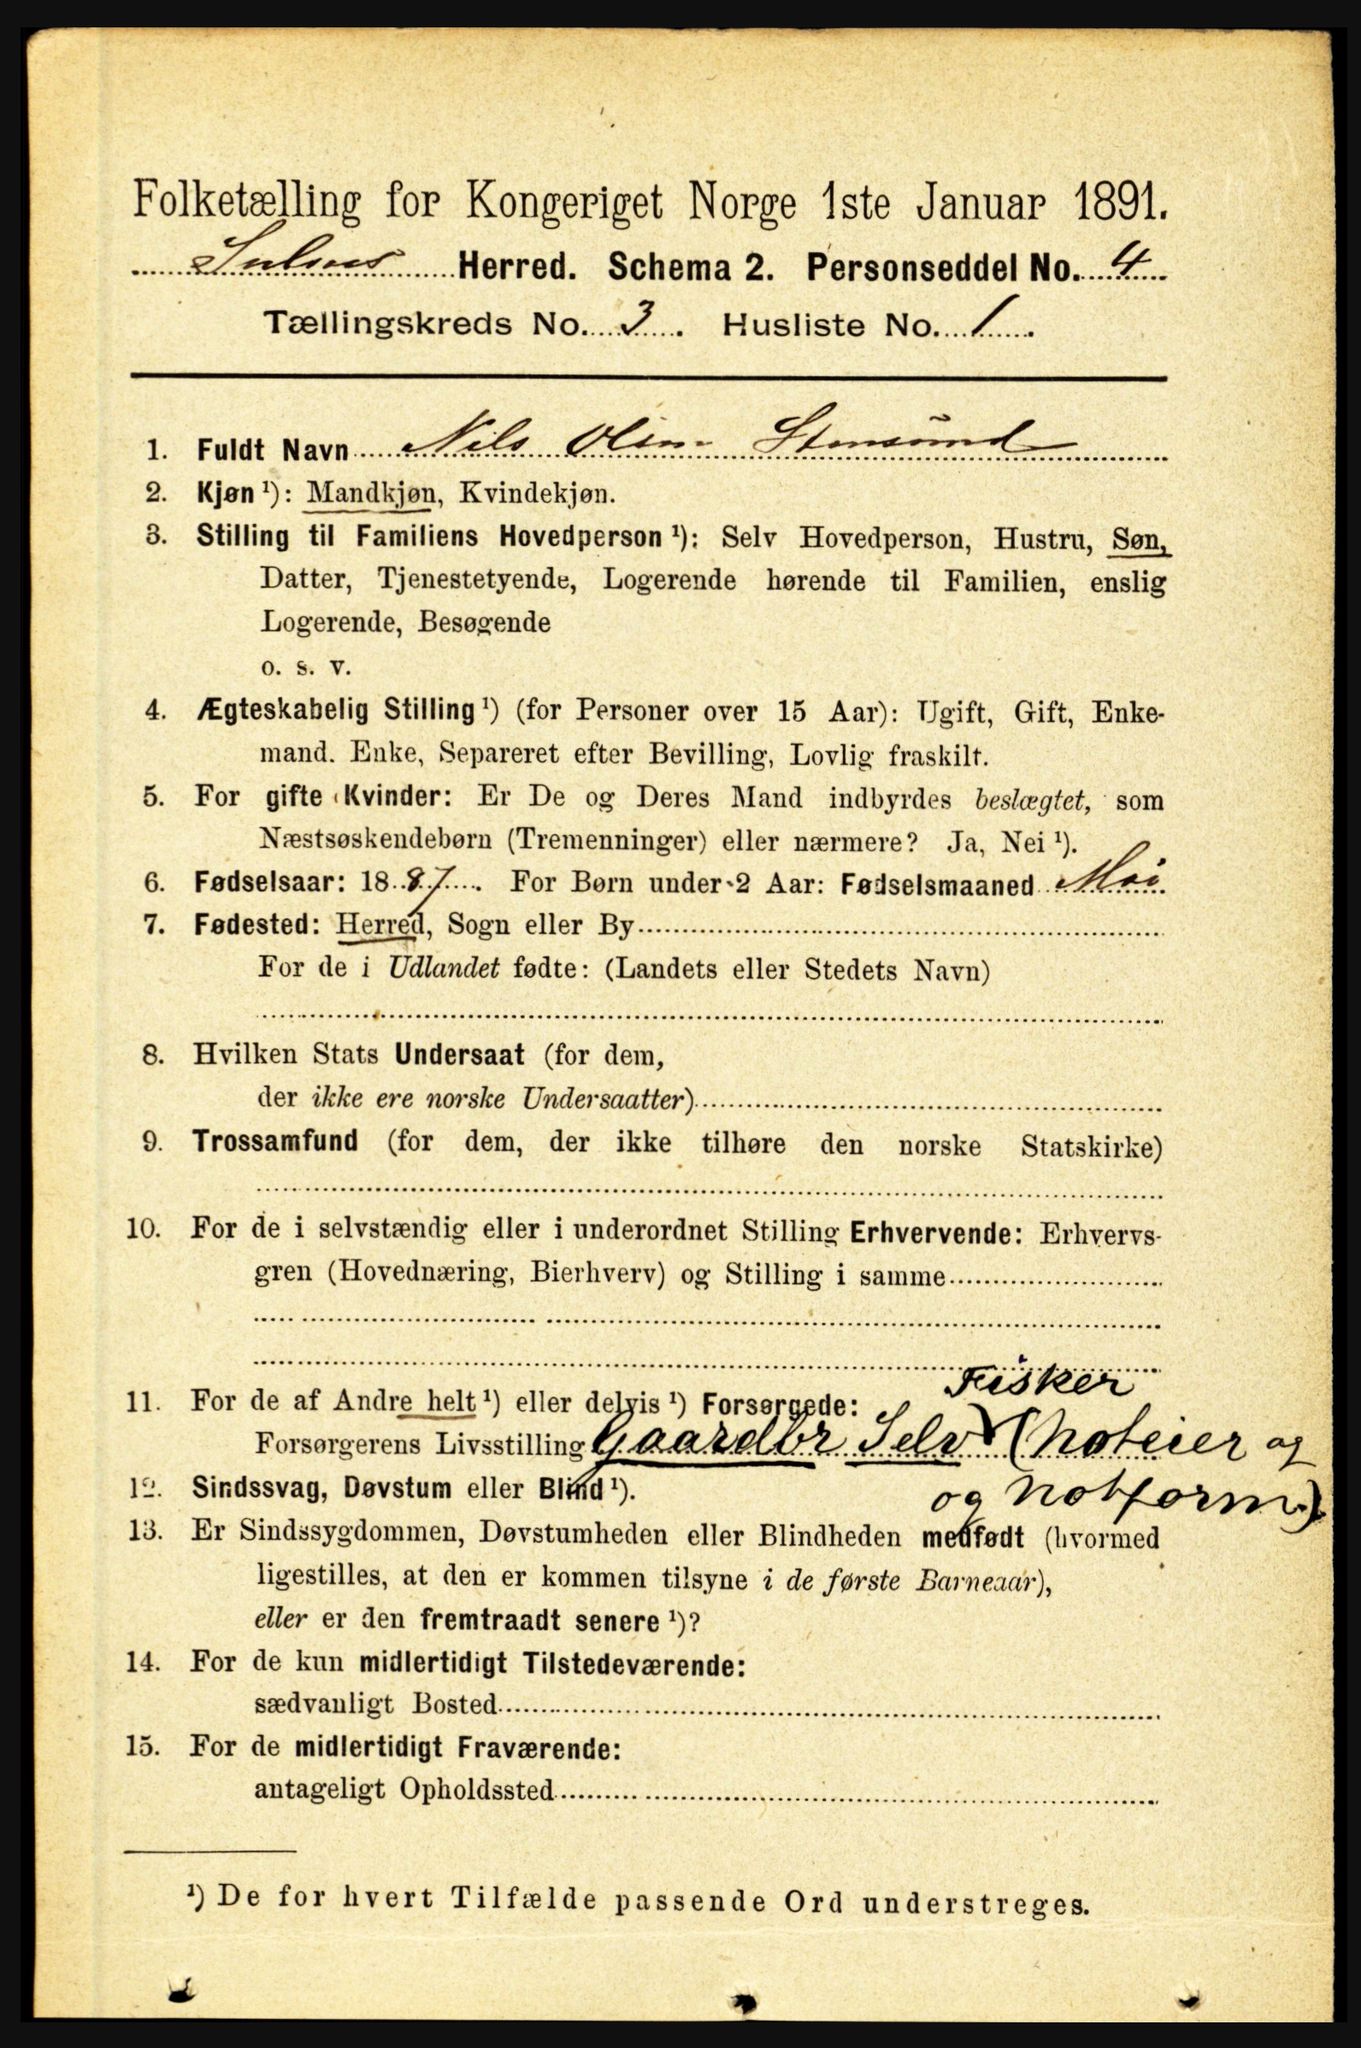 Folketælling for Kongeriget Norge 1ste Januar 1891.
Herred. Schema 2. Personseddel No. 4
Tællingskreds No. 3. Husliste No. 1.
1. Fuldt Navn Nils Olsen Stensund
2. Kjøn ¹): Mandkjøn, Kvindekjøn.
3. Stilling til Familiens Hovedperson ¹): Selv Hovedperson, Hustru, Søn,
Datter, Tjenestetyende, Logerende hørende til Familien, enslig
Logerende, Besøgende
o. s. v.
4. Ægteskabelig Stilling ¹) (for Personer over 15 Aar): Ugift, Gift, Enke-
mand. Enke, Separeret efter Bevilling, Lovlig fraskilt.
5. For gifte Kvinder: Er De og Deres Mand indbyrdes beslægtet, som
Næstsøskendebørn (Tremenninger) eller nærmere? Ja, Nei ¹).
6. Fødselsaar: 1887. For Børn under 2 Aar: Fødselsmaaned Mai
7. Fødested: Herred, Sogn eller By
For de i Udlandet fødte: (Landets eller Stedets Navn)
8. Hvilken Stats Undersaat (for dem,
der ikke ere norske Undersaatter)
9. Trossamfund (for dem, der ikke tilhøre den norske Statskirke)
10. For de i selvstændig eller i underordnet Stilling Erhvervende: Erhvervs-
gren (Hovednæring, Bierhverv) og Stilling i samme
Fisker
11. For de af Andre helt ¹) eller delvis ¹) Forsørgede:
Forsørgerens Livsstilling Gaardbr Selv (Noteier og
og Notform.)
12. Sindssvag, Døvstum eller Blind ¹).
13. Er Sindssygdommen, Døvstumheden eller Blindheden medfødt (hvormed
ligestilles, at den er kommen tilsyne i de første Barneaar),
eller er den fremtraadt senere ¹)?
14. For de kun midlertidigt Tilstedeværende:
sædvanligt Bosted
15. For de midlertidigt Fraværende:
antageligt Opholdssted
¹) De for hvert Tilfælde passende Ord understreges.